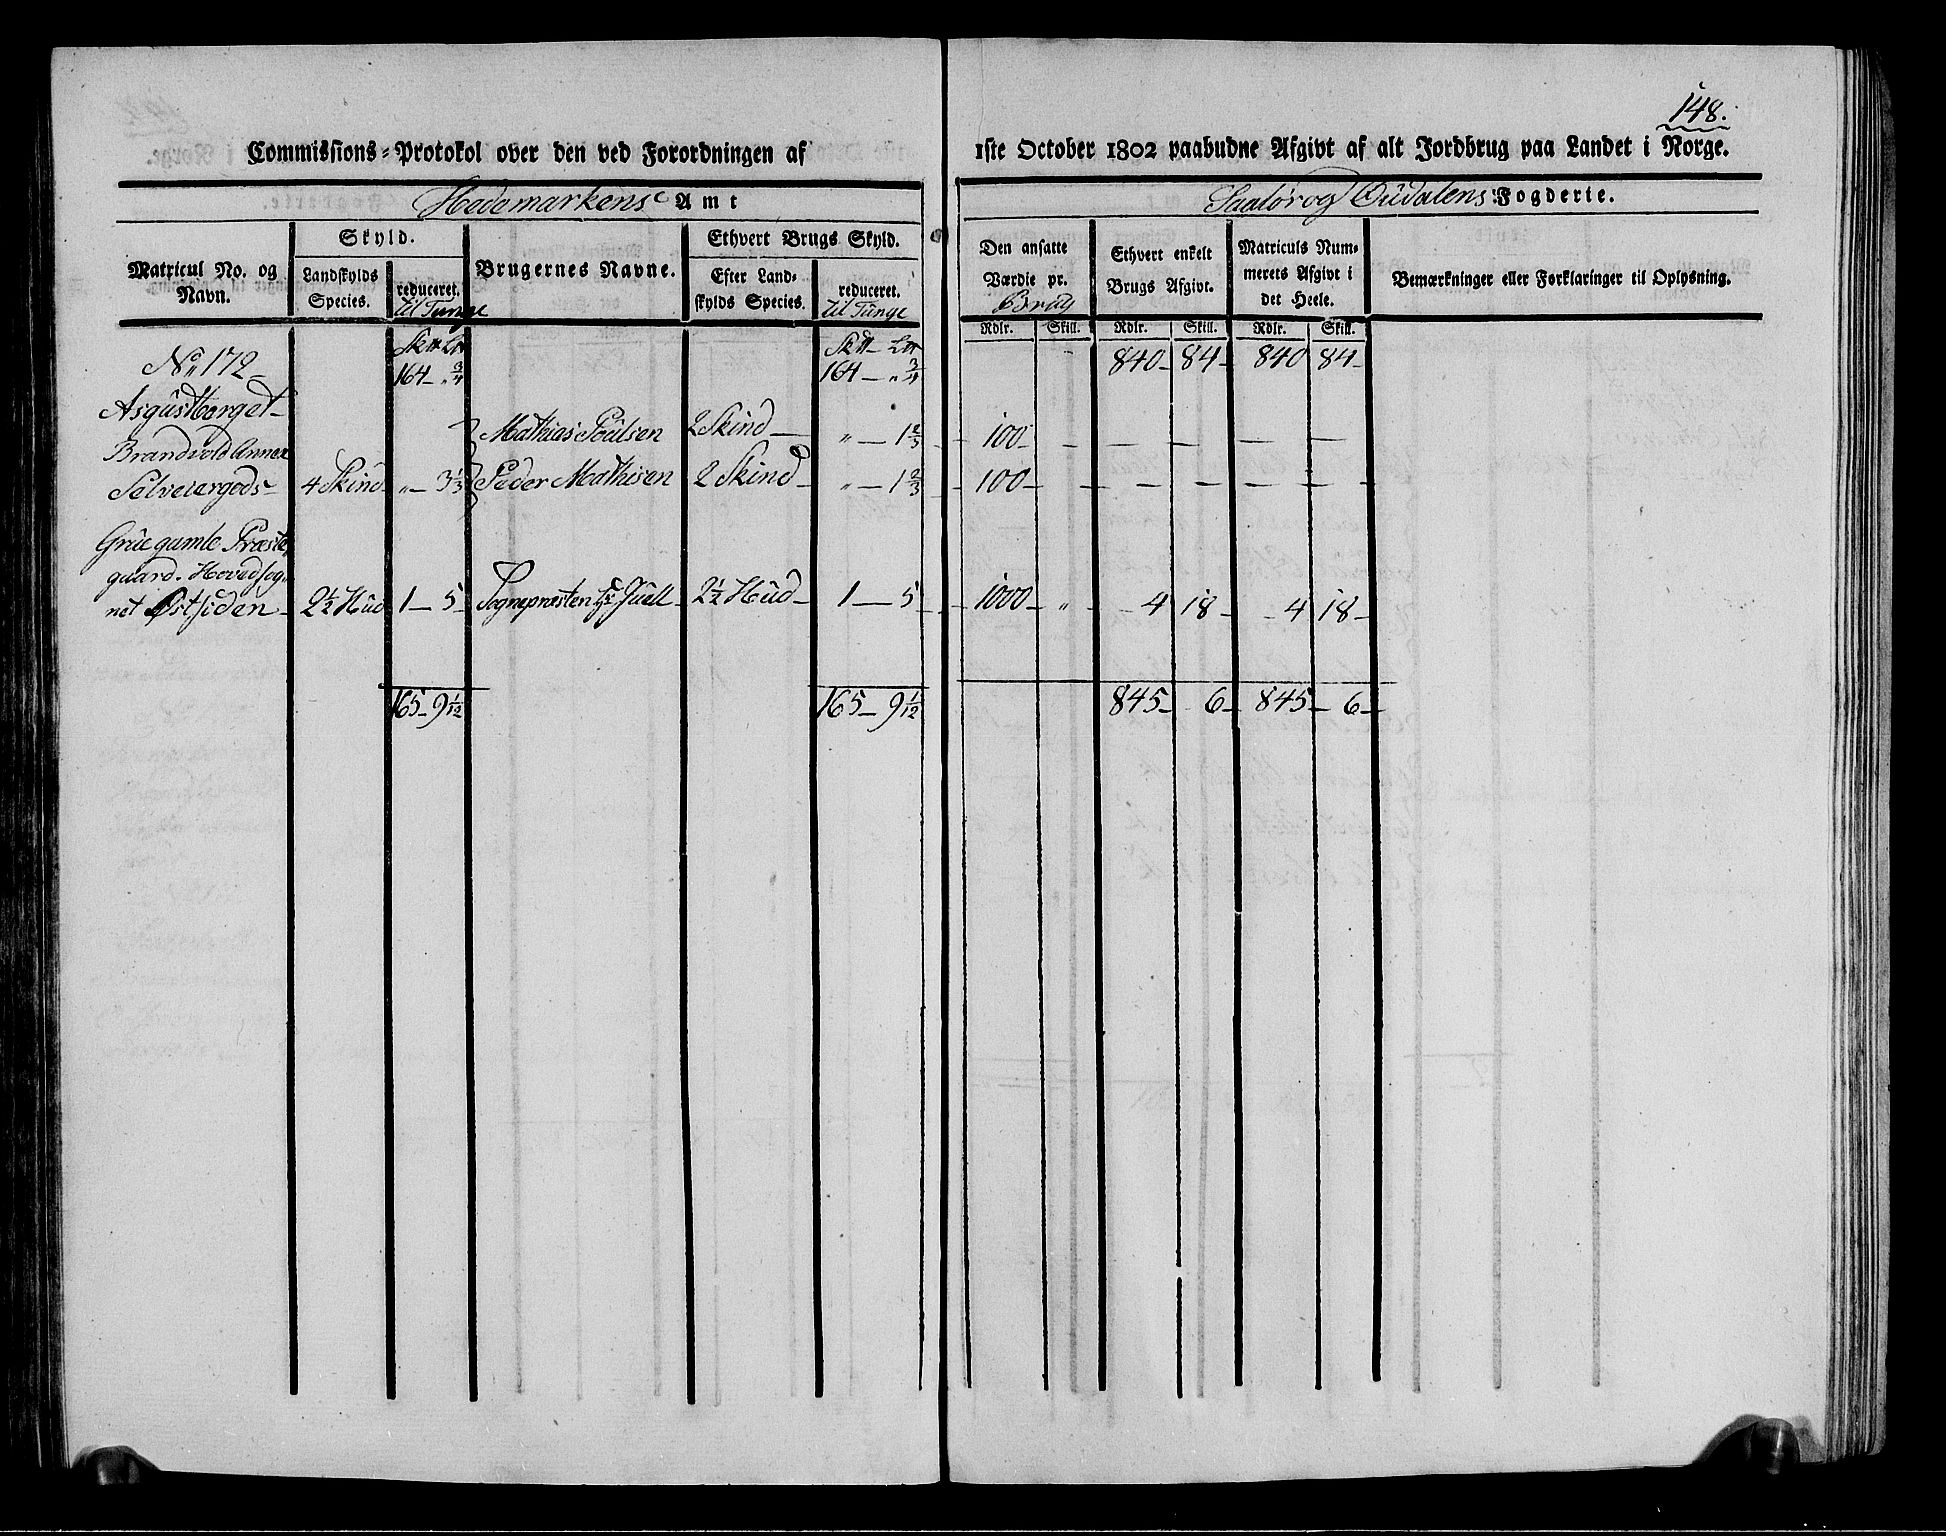 148.
Commissions-Protokol over den ved Forordningen af 1ste October 1802 paabudne Afgivt af alt Jordbrug paa Landet i Norge.
Hedemarkens Amt Saalør og Oudalens Fogderie.
Matricul No. og Navn.
Skyld.
Landskylds Species.
reduceret. til Tunge
Brugernes Navne.
Ethvert Brugs Skyld.
Efter Landskylds Species.
reduceret. til Tunge
Den ansatte Værdie pr. Brug
Ethvert enkelt Brugs Afgivt.
Matriculs Nummerets Afgivt i det Heele.
Bemærkninger eller Forklaringer til Oplysning.
Rdlr. Skill. Rdlr. Skill. Rdlr. Skill.
No 172 164 - „ 3/4 164 - „ 3/4 840 - 84 - 840 84 -
Asgustborget
Brandvold Annex Mathias Poulsen 2 Skind „ - 1 2/3 100 - - - - -
Selveiergods - 4 Skind „ - 3 1/3 Peder Mathisen 2 Skind „ - 1 2/3 100 - - - - -
Grue gamle Præste
guard. Hovedsog
net Østsiden - 2 1/2 Hud 1 - 5 - Sognepræsten Hr Juell - 2 1/2 Hud - 1 - 5 - 1000 - „ - 4 18 - 4 18 -
165 - 9 1/12 165 - 9 1/12 845 - 6 - 845 - 6 -